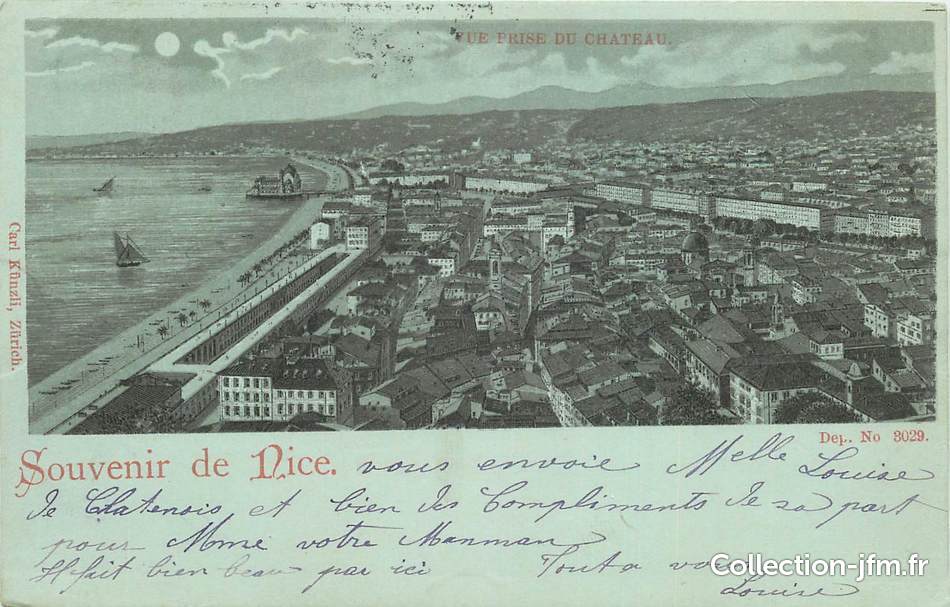 VUE PRISE DU CHATEAU.
Carl Künzli, Zürich.
Dep. No 3029.
Souvenir de Nice. vous envoie Melle Louise
de Chatenois et bien des Compliments de sa part
pour Mme votre Manman
Il fait bien beau par ici Tout a vous
Louise
Collection-jfm.fr